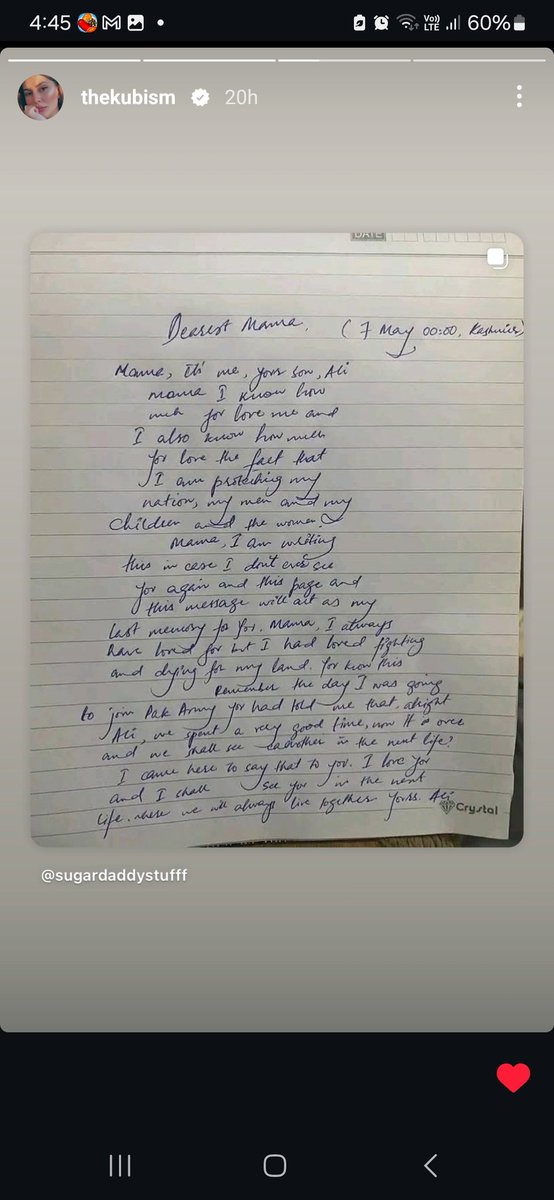 4:45
Vo))
LTE
60%
thekubism 20h
DATE
Dearest Mama, ( 7 May 00:00, Kashmir)
Mama, It's me, your son, Ali
mama I know how
much for love me and
I also know how much
for love the fact that
I am protecting my
nation, my men and my
children and the women.
Mama, I am writing
this in case I don't ever see
for again and this page and
this message will act as my
last memory for for. Mama, I always
have loved for but I had loved fighting
and dying for my land. for know this
Remember the day I was going
to join Pak Army for had told me that, alright
Ali, we spent a very good time, now it is over
and we shall see eachother in the next life?
I came here to say that to you. I love for
and I shall see you in the next
life. where we will always live together Yours. Ali
Crystal
@sugardaddystufff